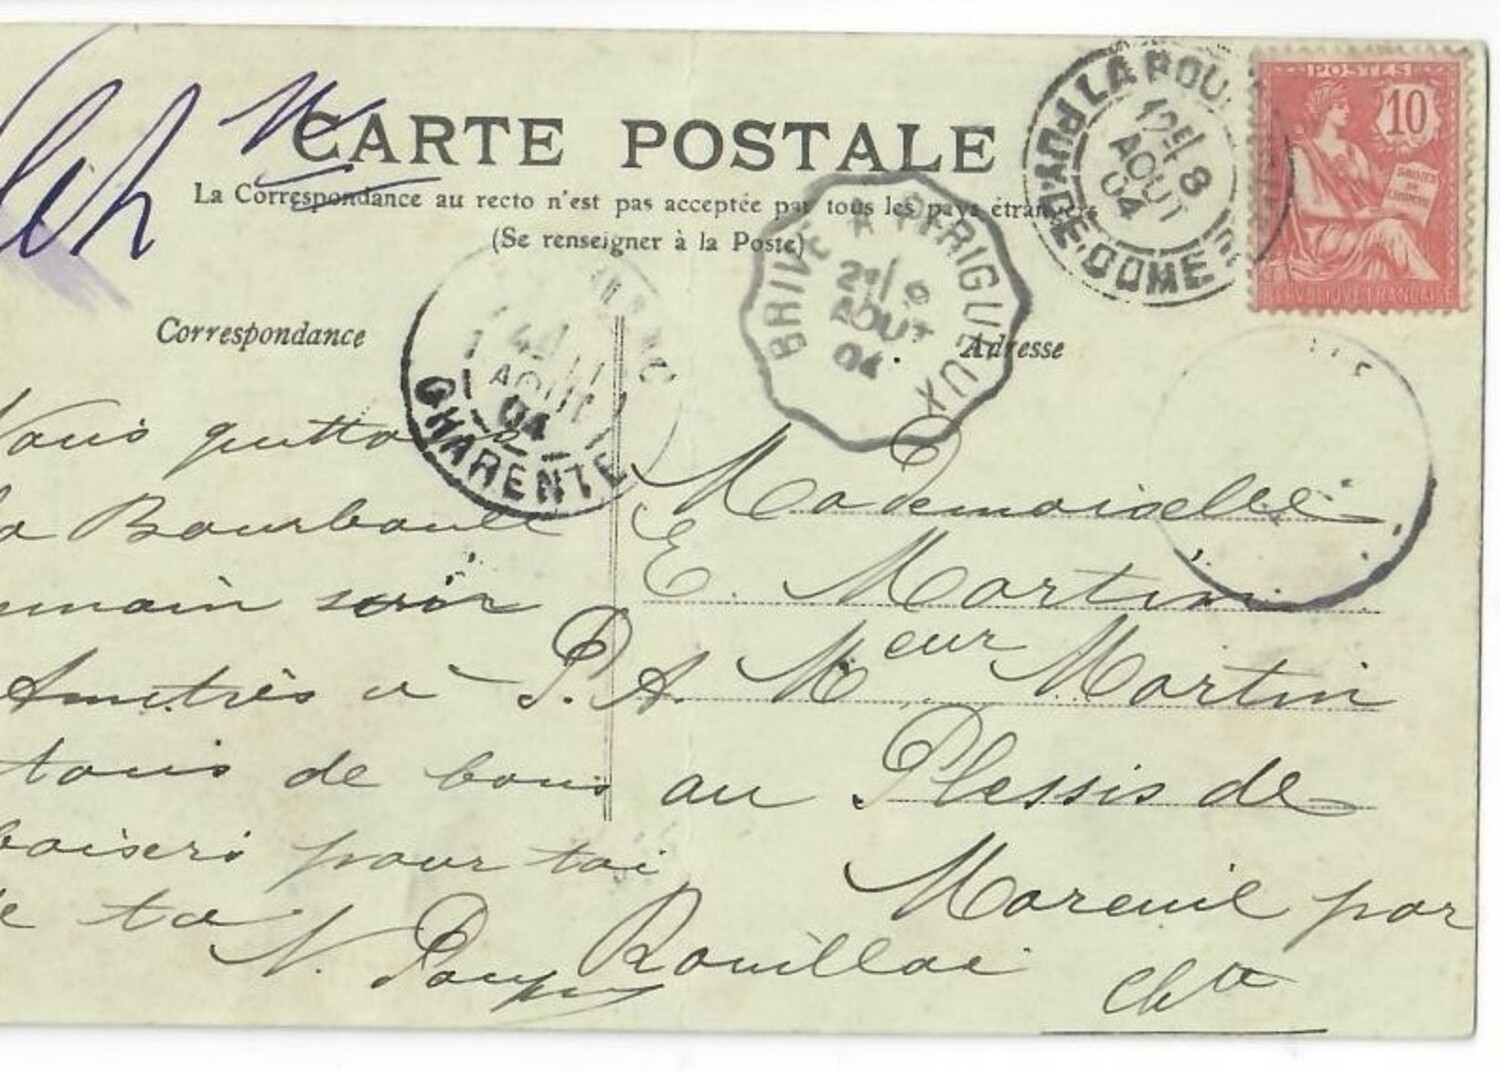 CARTE POSTALE
La Correspondance au recto n'est pas acceptée par tous les pays étrangers
(Se renseigner à la Poste)
LA BOU
PUY-DE-DOME
12 8
AOUT
04
POSTES
10
DROITS DE L'HOMME
REPUBLIQUE FRANÇAISE
BRIVE A PERIGUEUX
AOUT
04
AOUT
04
CHARENTE
Correspondance
Adresse
Nous quittons
la Bourboule
emain soir
tous de bons
baisers pour toi
de ta
N.
Mademoiselle
E. Martin
P. A. Meur Martin
au Plessis de
Mareuil par
Rouillac
Chte